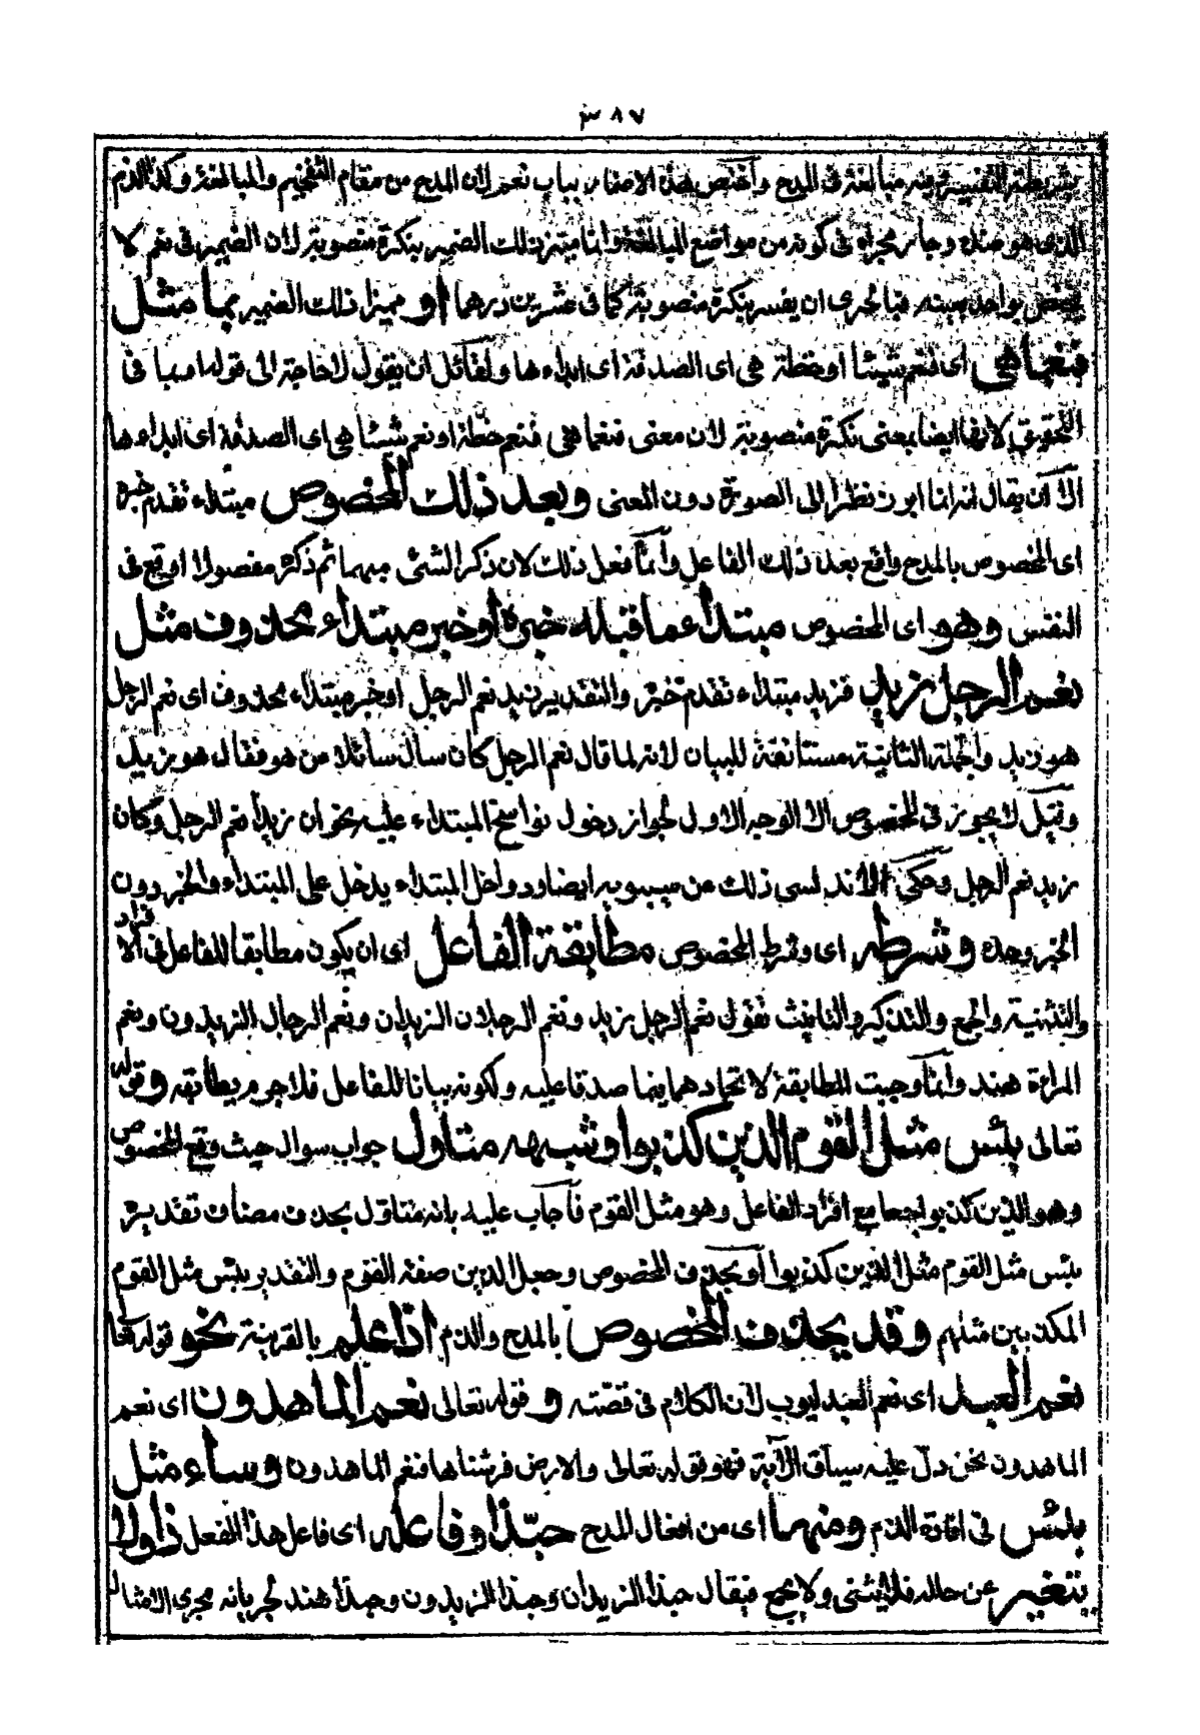 ٣٨٧
بشريطة التفسير فيه مبالغة فى المدح واختص هذه الاضمار بباب نعم لان المدح من مقام التفخيم والمبالغة وكذا الذم
الذى هو ضده وجار مجراه فى كونه من مواضع المبالغة وانما ميز ذلك الضمير بنكرة منصوبة لان الضمير فى نعم لا
يختص بواحد بعينه فبالحرى ان يفسر بنكرة منصوبة كما فى عشرين درهما او مميزا ذلك الضمير بما مثل
فنعما هى اى فنعم شيئا او خطة هى اى الصدقة اى ابداءها ولقائل ان يقول لا حاجة الى قوله او بما فى
التحقيق لانها ايضا بمعنى نكرة منصوبة لان معنى فنعما هى فنعم خطة او نعم شيئا هى اى الصدقة اى ابداءها
الا ان يقال انه انما ابرز نظرا الى الصورة دون المعنى وبعد ذلك المخصوص مبتداء تقدم خبره
اى المخصوص بالمدح واقع بعد ذلك الفاعل وانما فعل ذلك لان ذكر الشئ مبهما ثم ذكره مفصولا اوقع فى
النفس وهو اى المخصوص مبتداء ما قبله خبره او خبر مبتداء محذوف مثل
نعم الرجل زيد فزيد مبتداء تقدم خبره والتقدير زيد نعم الرجل او خبر مبتداء محذوف اى نعم الرجل
هو زيد والجملة الثانية مستانفة للبيان لانه لما قال نعم الرجل كان سال سائلا من هو فقال هو زيد
وقيل لا يجوز فى المخصوص الا الوجه الاول لجواز دخول نواسخ المبتداء عليه نحو ان زيدا نعم الرجل وكان
زيد نعم الرجل وحكى الاندلسى ذلك عن سيبويه ايضا ودواخل المبتداء يدخل على المبتداء والخبر دون
الخبر وحده وشرطه اى وشرط المخصوص مطابقة الفاعل اى ان يكون مطابقا للفاعل فى الافراد
والتثنية والجمع والتذكير والتانيث تقول نعم الرجل زيد ونعم الرجلان الزيدان ونعم الرجال الزيدون ونعم
المراءة هند وانما وجبت المطابقة لاتحادهما فيما صدقا عليه ولكونه بيانا للفاعل فلا جرم يطابقه وقوله
تعالى بئس مثل القوم الذين كذبوا وشبهه متاول جواب سوال حيث وقع المخصوص
وهو الذين كذبوا جمعا مع افراد الفاعل وهو مثل القوم فاجاب عليه بانه متاول بحذف مضاف تقديره
بئس مثل القوم مثل الذين كذبوا او بحذف المخصوص وجعل الذين صفة القوم والتقدير بئس مثل القوم
المكذبين مثلهم وقد يحذف المخصوص بالمدح والذم اذا علم بالقرينة نحو قوله تعا
نعم العبد اى نعم العبد ايوب لان الكلام فى قصته و قوله تعالى نعم الماهدون اى نعم
الماهدون نحن دل عليه سياق الآية فهو قوله تعالى والارض فرشناها فنعم الماهدون وساء مثل
بئس فى افادة الذم ومنها اى من افعال المدح حبذا وفاعله اى فاعل هذا الفعل ذا ولا
يتغير عن حاله فلا يثنى ولا يجمع فيقال حبذا الزيدان وحبذا الزيدون وحبذا هند لجريانه مجرى الامثال